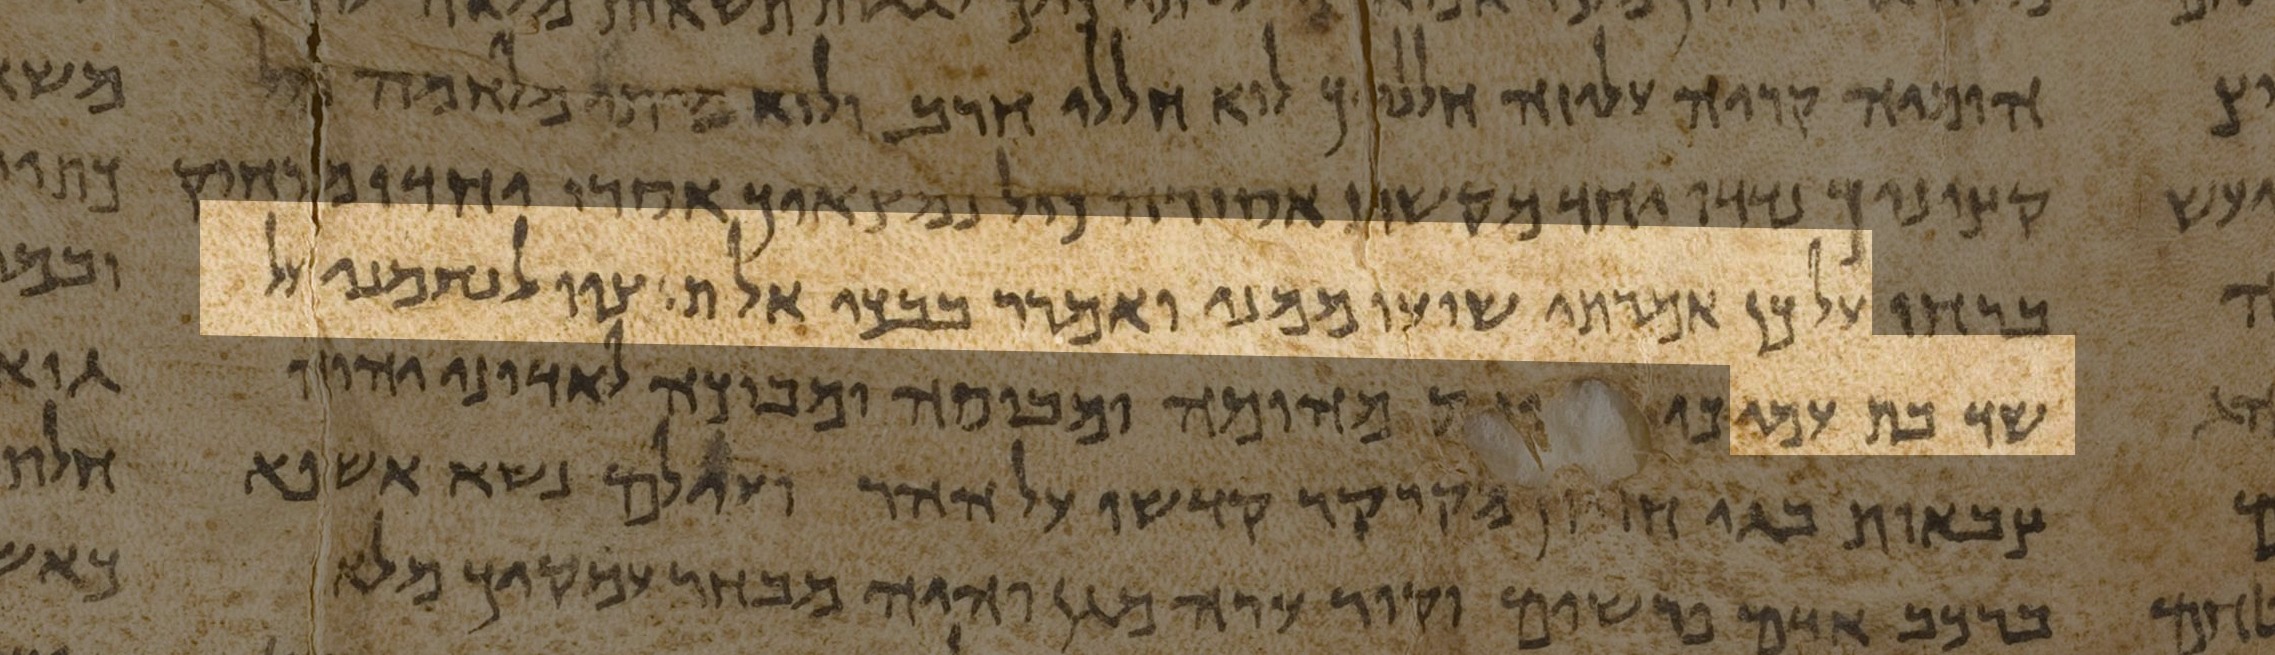 הומיה קריה עליזה חלליך לוא חללי חרב ולוא מיתי מלחמה כול
קציניך נדדו יחד מקשת אסורה כול נמצאיך אסרו יחדיו מרחוק
ברחו על כן אמרתי שועו ממני ואמרר בבכי אל תאיצו לנחמני על
שד בת עמי כי מהומה ומבוסה ומבוכה לאדוני יהוה
צבאות בגי חזיון מקרקר קדשו על ההר ועילם נשא אשפא
ברכב אדם פרשים וקיר ערה מגן והיה מבחר עמקיך מלאו